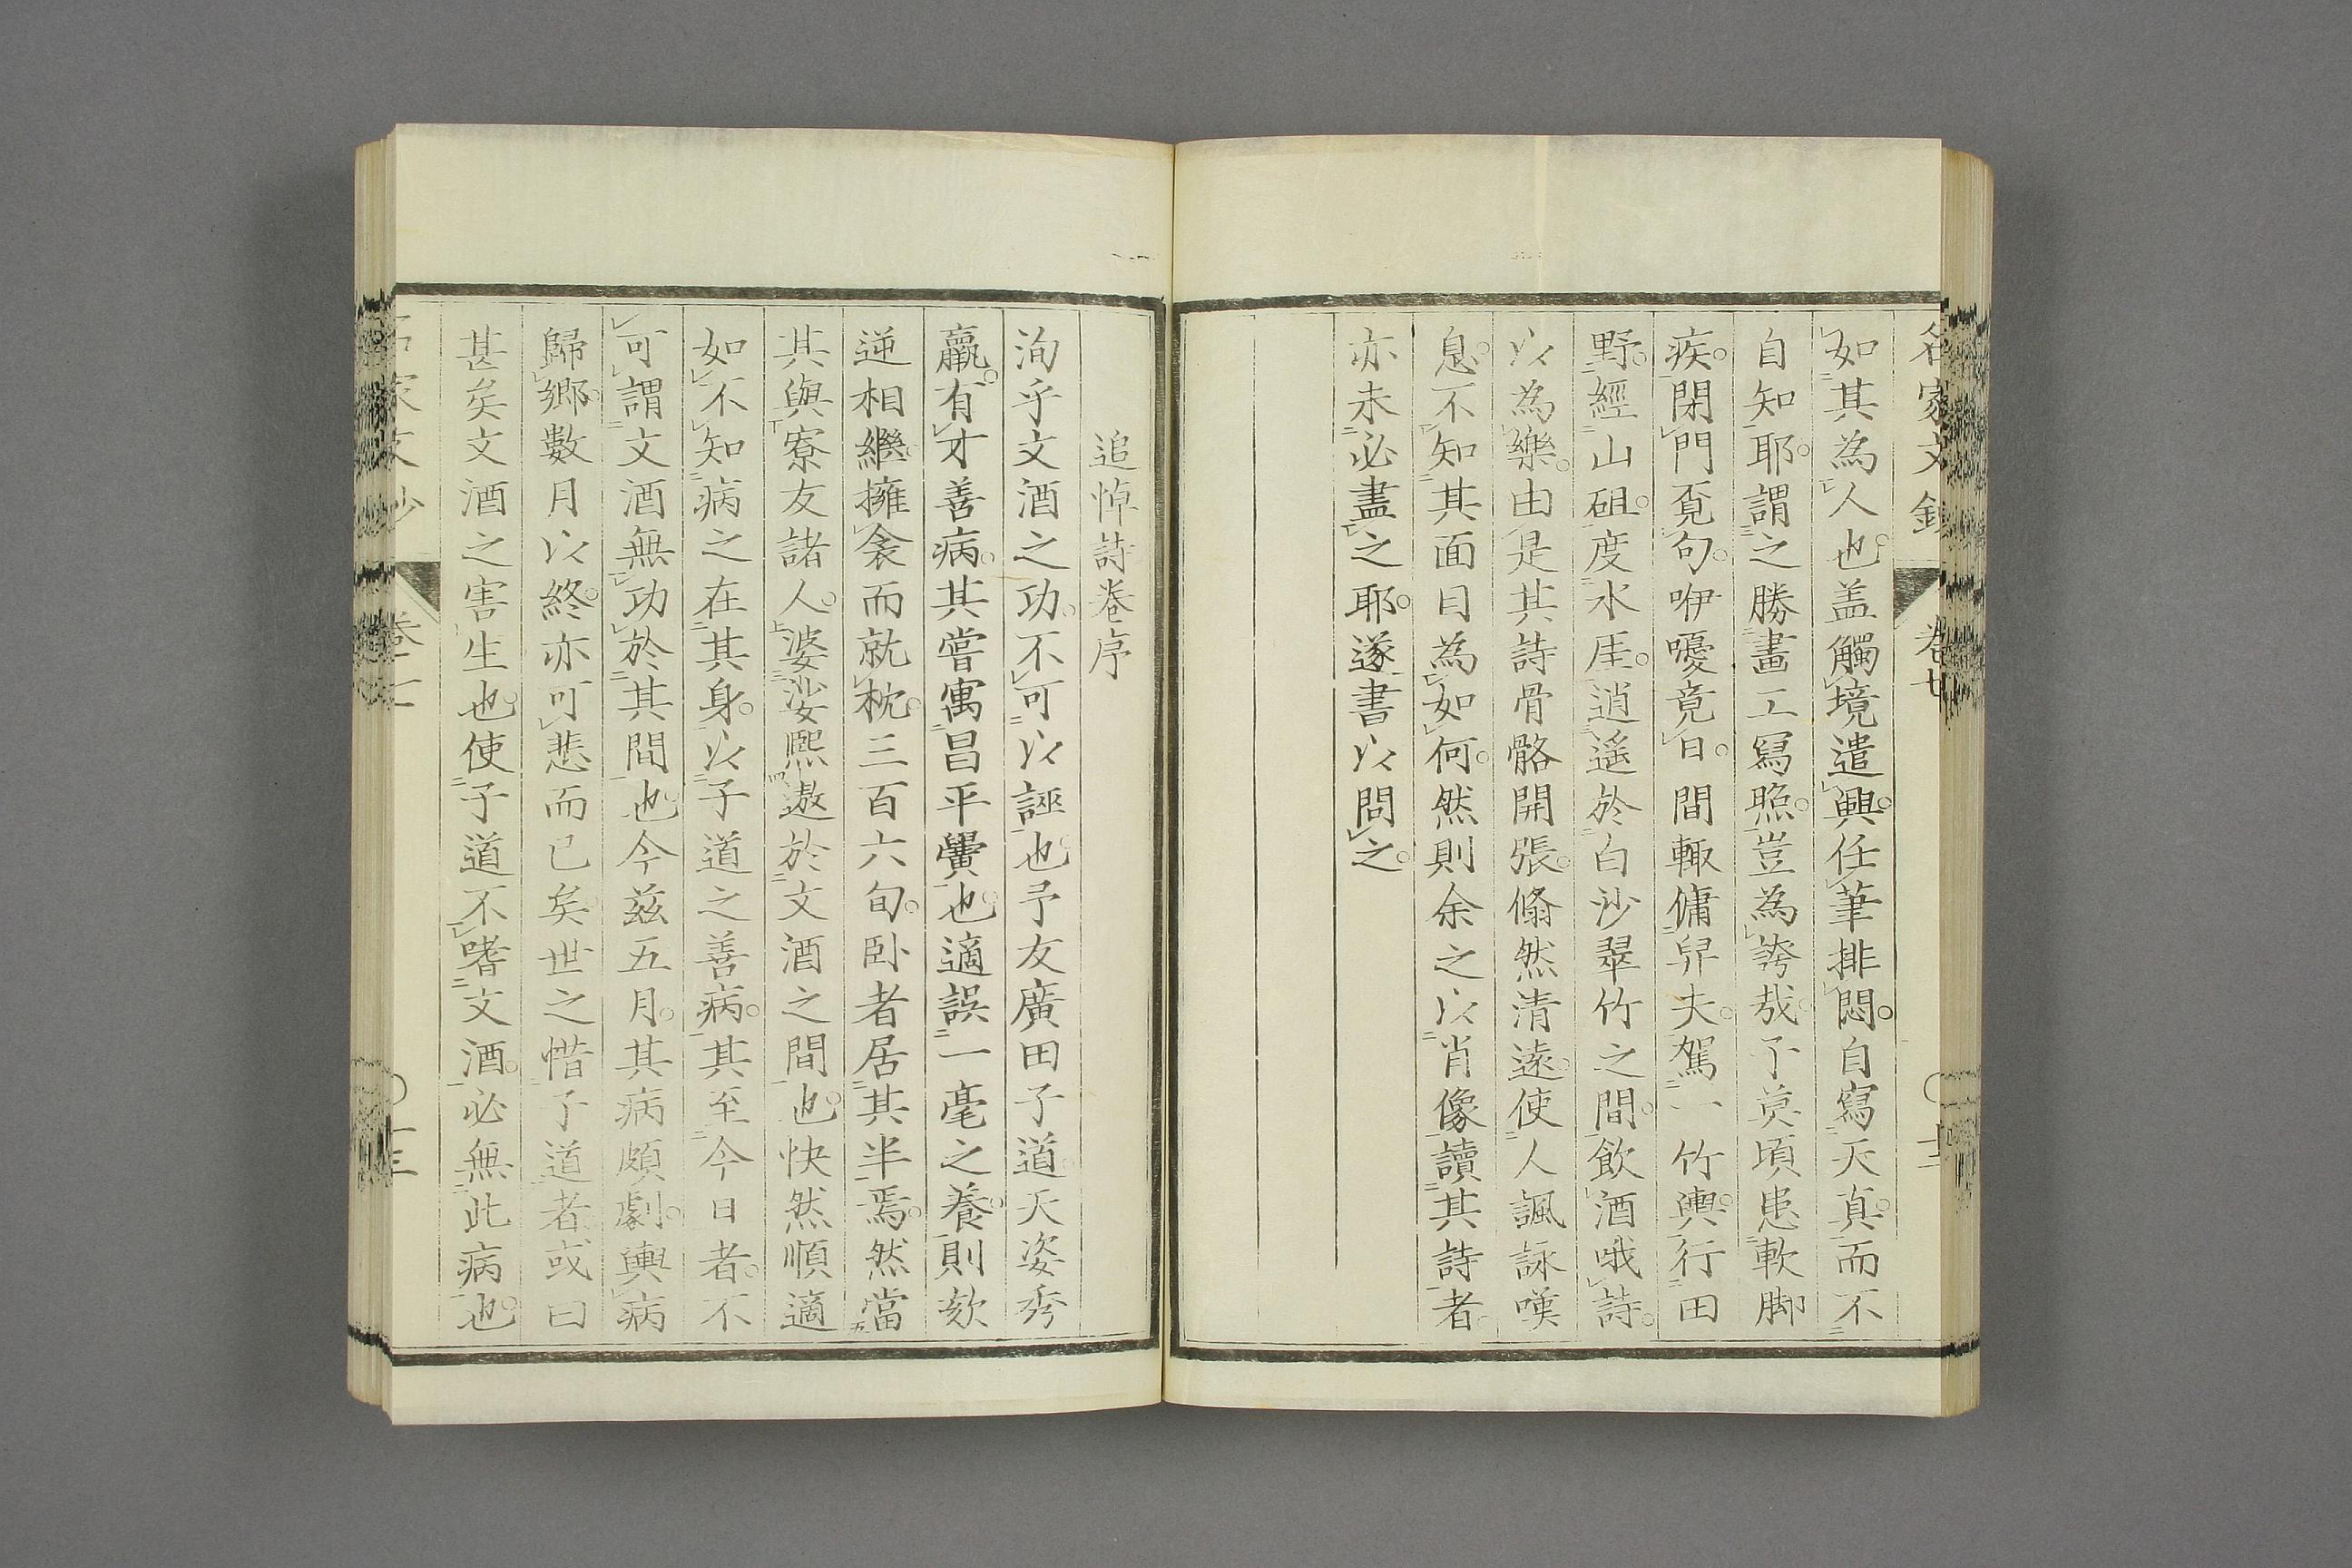 名家文鈔 卷七
如其為人也盖觸境遣興任筆排悶自寫天真而不
自知耶謂之勝畫工寫照豈為誇哉予莫頃患軟脚
疾閉門覓句咿嚘竟日間輙傭舁夫駕一竹輿行田
野經山砠度水厓逍遙於白沙翠竹之間飲酒哦詩
以為樂由是其詩骨骼開張翛然清遠使人諷詠嘆
息不知其面目為如何然則余之以肖像讀其詩者
亦未必盡之耶遂書以問之
追悼詩卷序
洵乎文酒之功不可以誣也予友廣田子道天姿秀
羸有才善病其嘗寓昌平黌也適誤一毫之養則欬
逆相繼擁衾而就枕三百六旬卧者居其半焉然當
其與寮友諸人婆娑熈遨於文酒之間也快然順適
如不知病之在其身以子道之善病其至今日者不
可謂文酒無功於其間也今兹五月其病頗劇輿病
歸郷數月以終亦可悲而已矣世之惜子道者或曰
甚矣文酒之害生也使子道不嗜文酒必無此病也